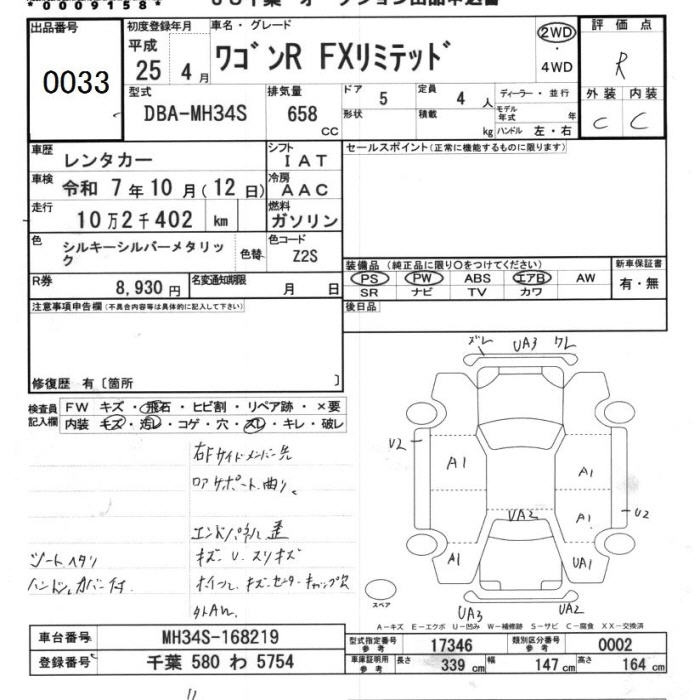 *0009158*
出品番号
0033
初度登録年月
平成
25 4月
車名・グレード
ワゴンR FXリミテッド
2WD
・
4WD
評価点
R
外装 内装
C C
型式
DBA-MH34S
排気量
658
CC
ドア 5
形状
定員 4 人
積載 kg
ディーラー・並行
モデル年式 年
ハンドル 左・右
車歴 レンタカー
シフト
IAT
車検 令和 7年10月(12日)
冷房
AAC
走行 10万2千402 km
燃料
ガソリン
色 シルキーシルバーメタリック
色替
色コード
Z2S
R券 8,930円
名変通知期限 月 日
セールスポイント(正常に機能するものに限ります)
装備品(純正品に限り○をつけてください)
PS PW ABS エアB AW
SR ナビ TV カワ
新車保証書
有・無
後日品
注意事項申告欄(不具合内容等は具体的に記入して下さい)
修復歴 有〔箇所 〕
検査員記入欄
FW キズ・飛石・ヒビ割・リペア跡・×要
内装 キズ・汚レ・コゲ・穴・スレ・キレ・破レ
右Fサイドメンバー先
ロアサポート曲り
エンドパネル歪
シートヘタリ
キズ U スリキズ
ハンドルカバー付
ズレ UA3 ワレ
U2
A1 A1
A1 U2
UA2
A1 UA1
UA3 UA2
スペア
A-キズ E-エクボ U-凹み W-補修跡 S-サビ C-腐食 XX-交換済
車台番号 MH34S-168219
登録番号 千葉 580 わ 5754
型式指定番号 参考 17346
類別区分番号 参考 0002
車庫証明用 参考 長さ 339cm 幅 147cm 高さ 164cm